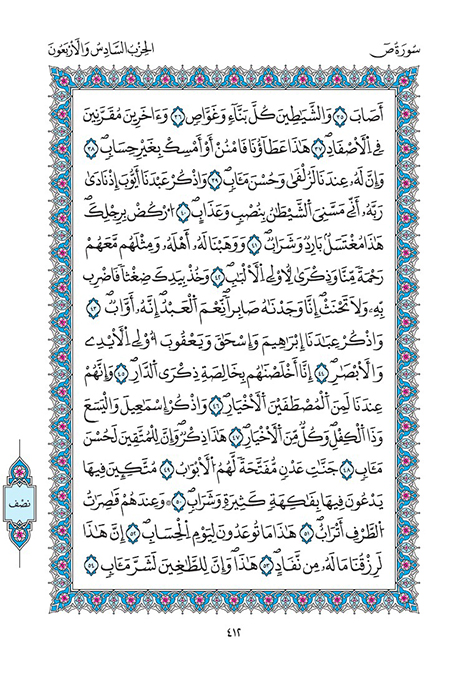 سُورَةُ صٓ
الحِزْبُ السَّادِسُ وَالْأَرْبَعُونَ
أَصَابَ ٣٥ وَالشَّيَٰطِينَ كُلَّ بَنَّآءٖ وَغَوَّاصٖ ٣٦ وَءَاخَرِينَ مُقَرَّنِينَ
فِي اِ۬لْأَصْفَادِ ٣٧ هَٰذَا عَطَآؤُنَا فَامْنُنْ أَوْ أَمْسِكْ بِغَيْرِ حِسَابٖ ٣٨
وَإِنَّ لَهُۥ عِندَنَا لَزُلْفَىٰ وَحُسْنَ مَـَٔابٖ ٣٩ وَاذْكُرْ عَبْدَنَآ أَيُّوبَ إِذْ نَادَىٰ
رَبَّهُۥٓ أَنِّي مَسَّنِيَ اَ۬لشَّيْطَٰنُ بِنُصْبٖ وَعَذَابٖ ٤٠ اُ۟رْكُضْ بِرِجْلِكَ
هَٰذَا مُغْتَسَلُۢ بَارِدٞ وَشَرَابٞ ٤١ وَوَهَبْنَا لَهُۥٓ أَهْلَهُۥ وَمِثْلَهُم مَّعَهُمْ
رَحْمَةٗ مِّنَّا وَذِكْرَىٰ لِأُوْلِي اِ۬لْأَلْبَٰبِ ٤٢ وَخُذْ بِيَدِكَ ضِغْثٗا فَاضْرِب
بِّهِۦ وَلَا تَحْنَثِ اِنَّا وَجَدْنَٰهُ صَابِرٗا نِّعْمَ اَ۬لْعَبْدُ إِنَّهُۥٓ أَوَّابٞ ٤٣
وَاذْكُرْ عِبَٰدَنَآ إِبْرَٰهِيمَ وَإِسْحَٰقَ وَيَعْقُوبَ أُوْلِي اِ۬لْأَيْدِے
وَالْأَبْصَٰرِ ٤٤ إِنَّآ أَخْلَصْنَٰهُم بِخَالِصَةِ ذِكْرَى اَ۬لدَّارِ ٤٥ وَإِنَّهُمْ
عِندَنَا لَمِنَ اَ۬لْمُصْطَفَيْنَ اَ۬لْأَخْيَارِ ٤٦ وَاذْكُرْ إِسْمَٰعِيلَ وَالْيَسَعَ
وَذَا اَ۬لْكِفْلِ وَكُلّٞ مِّنَ اَ۬لْأَخْيَارِ ٤٧ هَٰذَا ذِكْرٞ وَإِنَّ لِلْمُتَّقِينَ لَحُسْنَ
مَـَٔابٖ ٤٨ جَنَّٰتِ عَدْنٖ مُّفَتَّحَةٗ لَّهُمُ اُ۬لْأَبْوَٰبُ ٤٩ مُتَّكِـِٔينَ فِيهَا
يَدْعُونَ فِيهَا بِفَٰكِهَةٖ كَثِيرَةٖ وَشَرَابٖ ٥٠ وَعِندَهُمْ قَٰصِرَٰتُ
اُ۬لطَّرْفِ أَتْرَابٌ ٥١ هَٰذَا مَا تُوعَدُونَ لِيَوْمِ اِ۬لْحِسَابِ ٥٢ إِنَّ هَٰذَا
لَرِزْقُنَا مَا لَهُۥ مِن نَّفَادٍ ٥٣ هَٰذَا وَإِنَّ لِلطَّٰغِينَ لَشَرَّ مَـَٔابٖ ٥٤
نصف
٤١٢